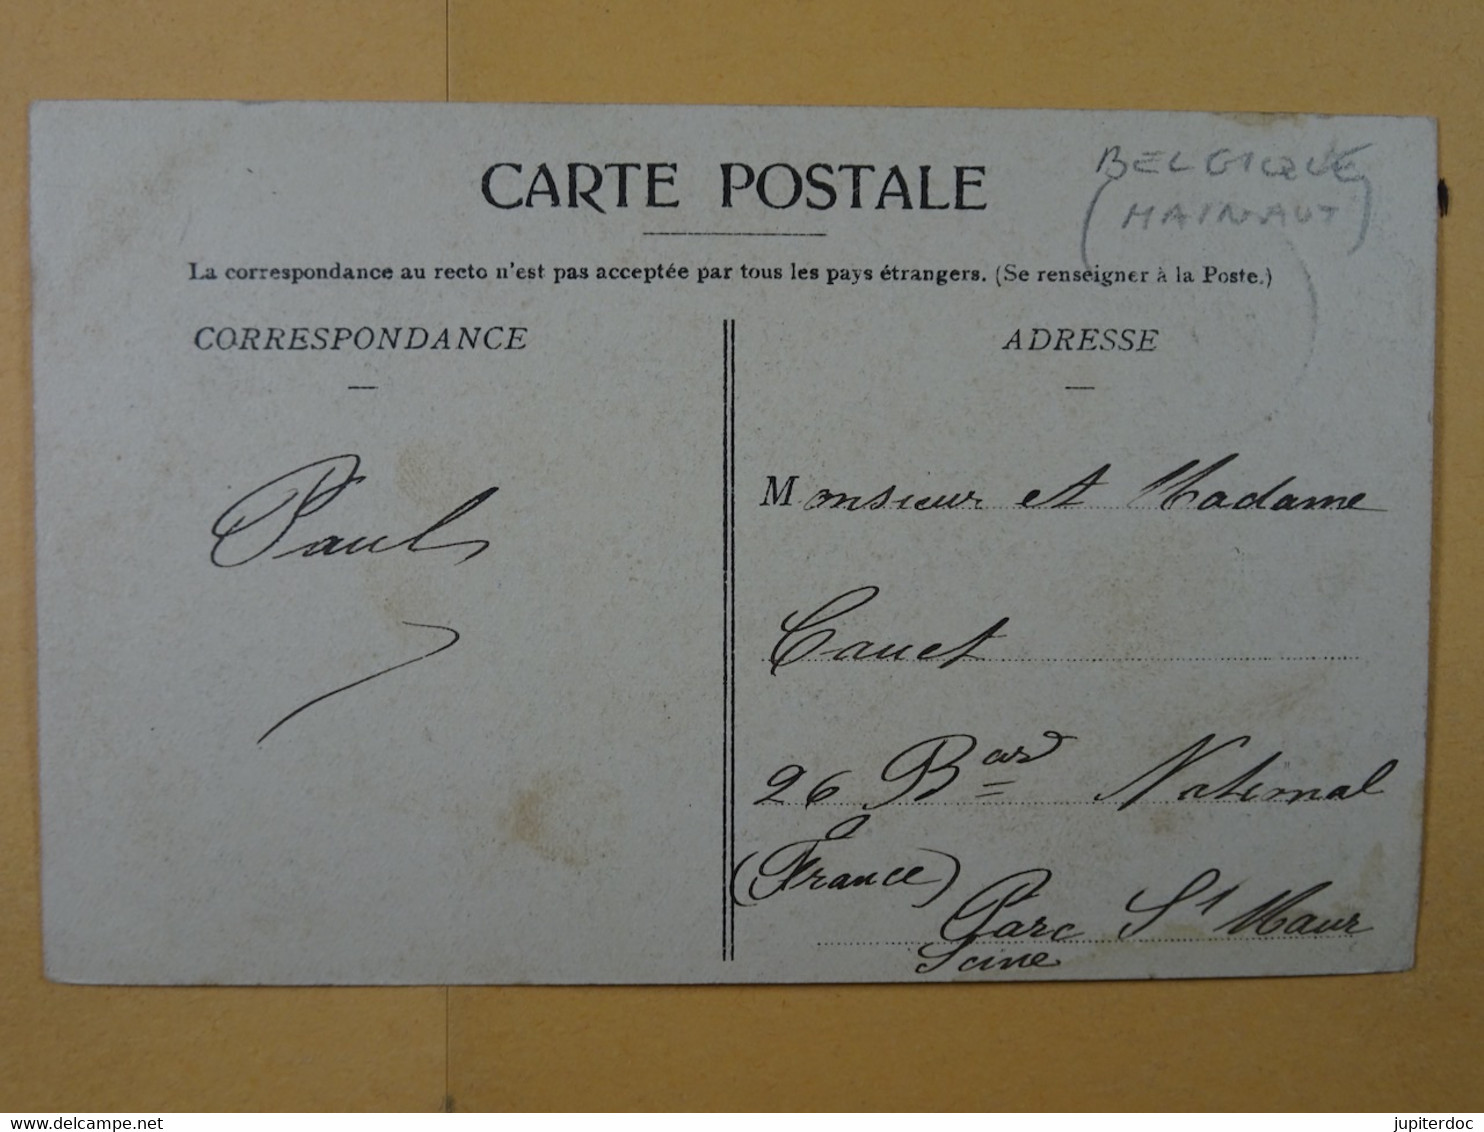 CARTE POSTALE
BELGIQUE
(HAINAUT)
La correspondance au recto n'est pas acceptée par tous les pays étrangers. (Se renseigner à la Poste.)
CORRESPONDANCE
Paul
ADRESSE
Monsieur et Madame
Cauet
26 Bard National
(France)
Parc St Maur
Seine
delcampe.net
jupiterdoc